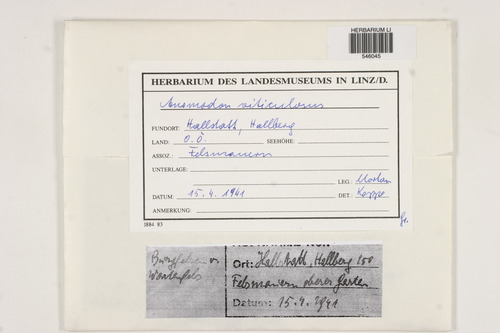 HERBARIUM LI
546045
HERBARIUM DES LANDESMUSEUMS IN LINZ/D.
Anomodon viticulosus
FUNDORT: Hallstatt, Hallberg
LAND: O.Ö. SEEHÖHE:
ASSOZ.: Felsmauern
UNTERLAGE:
LEG.: Morton
DATUM: 15.4.1941 DET.:
ANMERKUNG:
1884 83
Ort: Hallstatt, Hallberg
Felsmauern oberer Garten
Datum: 15.4.1941